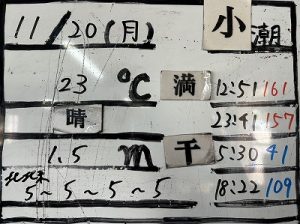 11/20(月) 小潮
23℃ 満 12:51 161
晴 23:41 157
1.5m 干 5:30 41
北北東 5~5~5~5 18:22 109